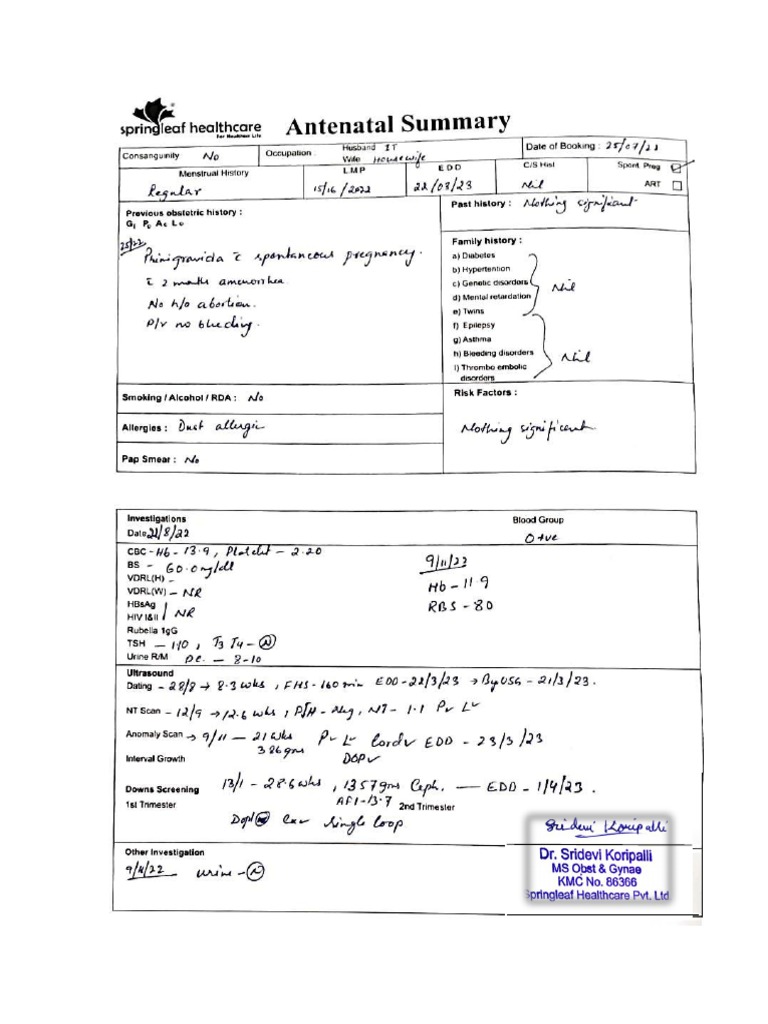 springleaf healthcare
For Healthier Life
Antenatal Summary
Consanguinity No
Occupation : Husband IT
Wife Housewife
Date of Booking : 25/07/22
Menstrual History
Regular
LMP
15/16/2022
EDD
22/03/23
C/S Hist
Nil
Spont. Preg
ART
Previous obstetric history :
G1 P0 A0 L0
25/22
Primigravida c spontaneous pregnancy.
c 2 months amenorrhea
No h/o abortion.
P/v no bleeding.
Past history : Nothing significant
Family history :
a) Diabetes
b) Hypertention
c) Genetic disorders
d) Mental retardation
e) Twins
Nil
f) Epilepsy
g) Asthma
h) Bleeding disorders
i) Thrombo embolic
disorders
Nil
Smoking / Alcohol / RDA : No
Allergies : Dust allergic
Pap Smear : No
Risk Factors :
Nothing significant
Investigations
Date 21/8/22
Blood Group
O +ve
CBC - Hb - 13.9, Platelet - 2.20
BS - 60.0 mg/dl
VDRL(H) -
VDRL(W) - NR
HBsAg
HIV I&II NR
Rubella 1gG
TSH - 1.10, T3 T4 - N
Urine R/M pc. - 8-10
9/11/22
Hb - 11.9
RBS - 80
Ultrasound
Dating - 28/8 → 8.3 wks, FHS - 160 min EDD - 22/3/23 → By USG - 21/3/23.
NT Scan - 12/9 → 12.6 wks, NT - 1.1
Anomaly Scan → 9/11 - 21 wks EDD - 23/3/23
386 gms
Interval Growth
Downs Screening 13/1 - 28.6 wks, 1357 gms Ceph. - EDD - 1/4/23.
1st Trimester AFI - 13.7 2nd Trimester
single loop
Other Investigation
urine - N
Sridevi Koripalli
Dr. Sridevi Koripalli
MS Obst & Gynae
KMC No. 86366
Springleaf Healthcare Pvt. Ltd